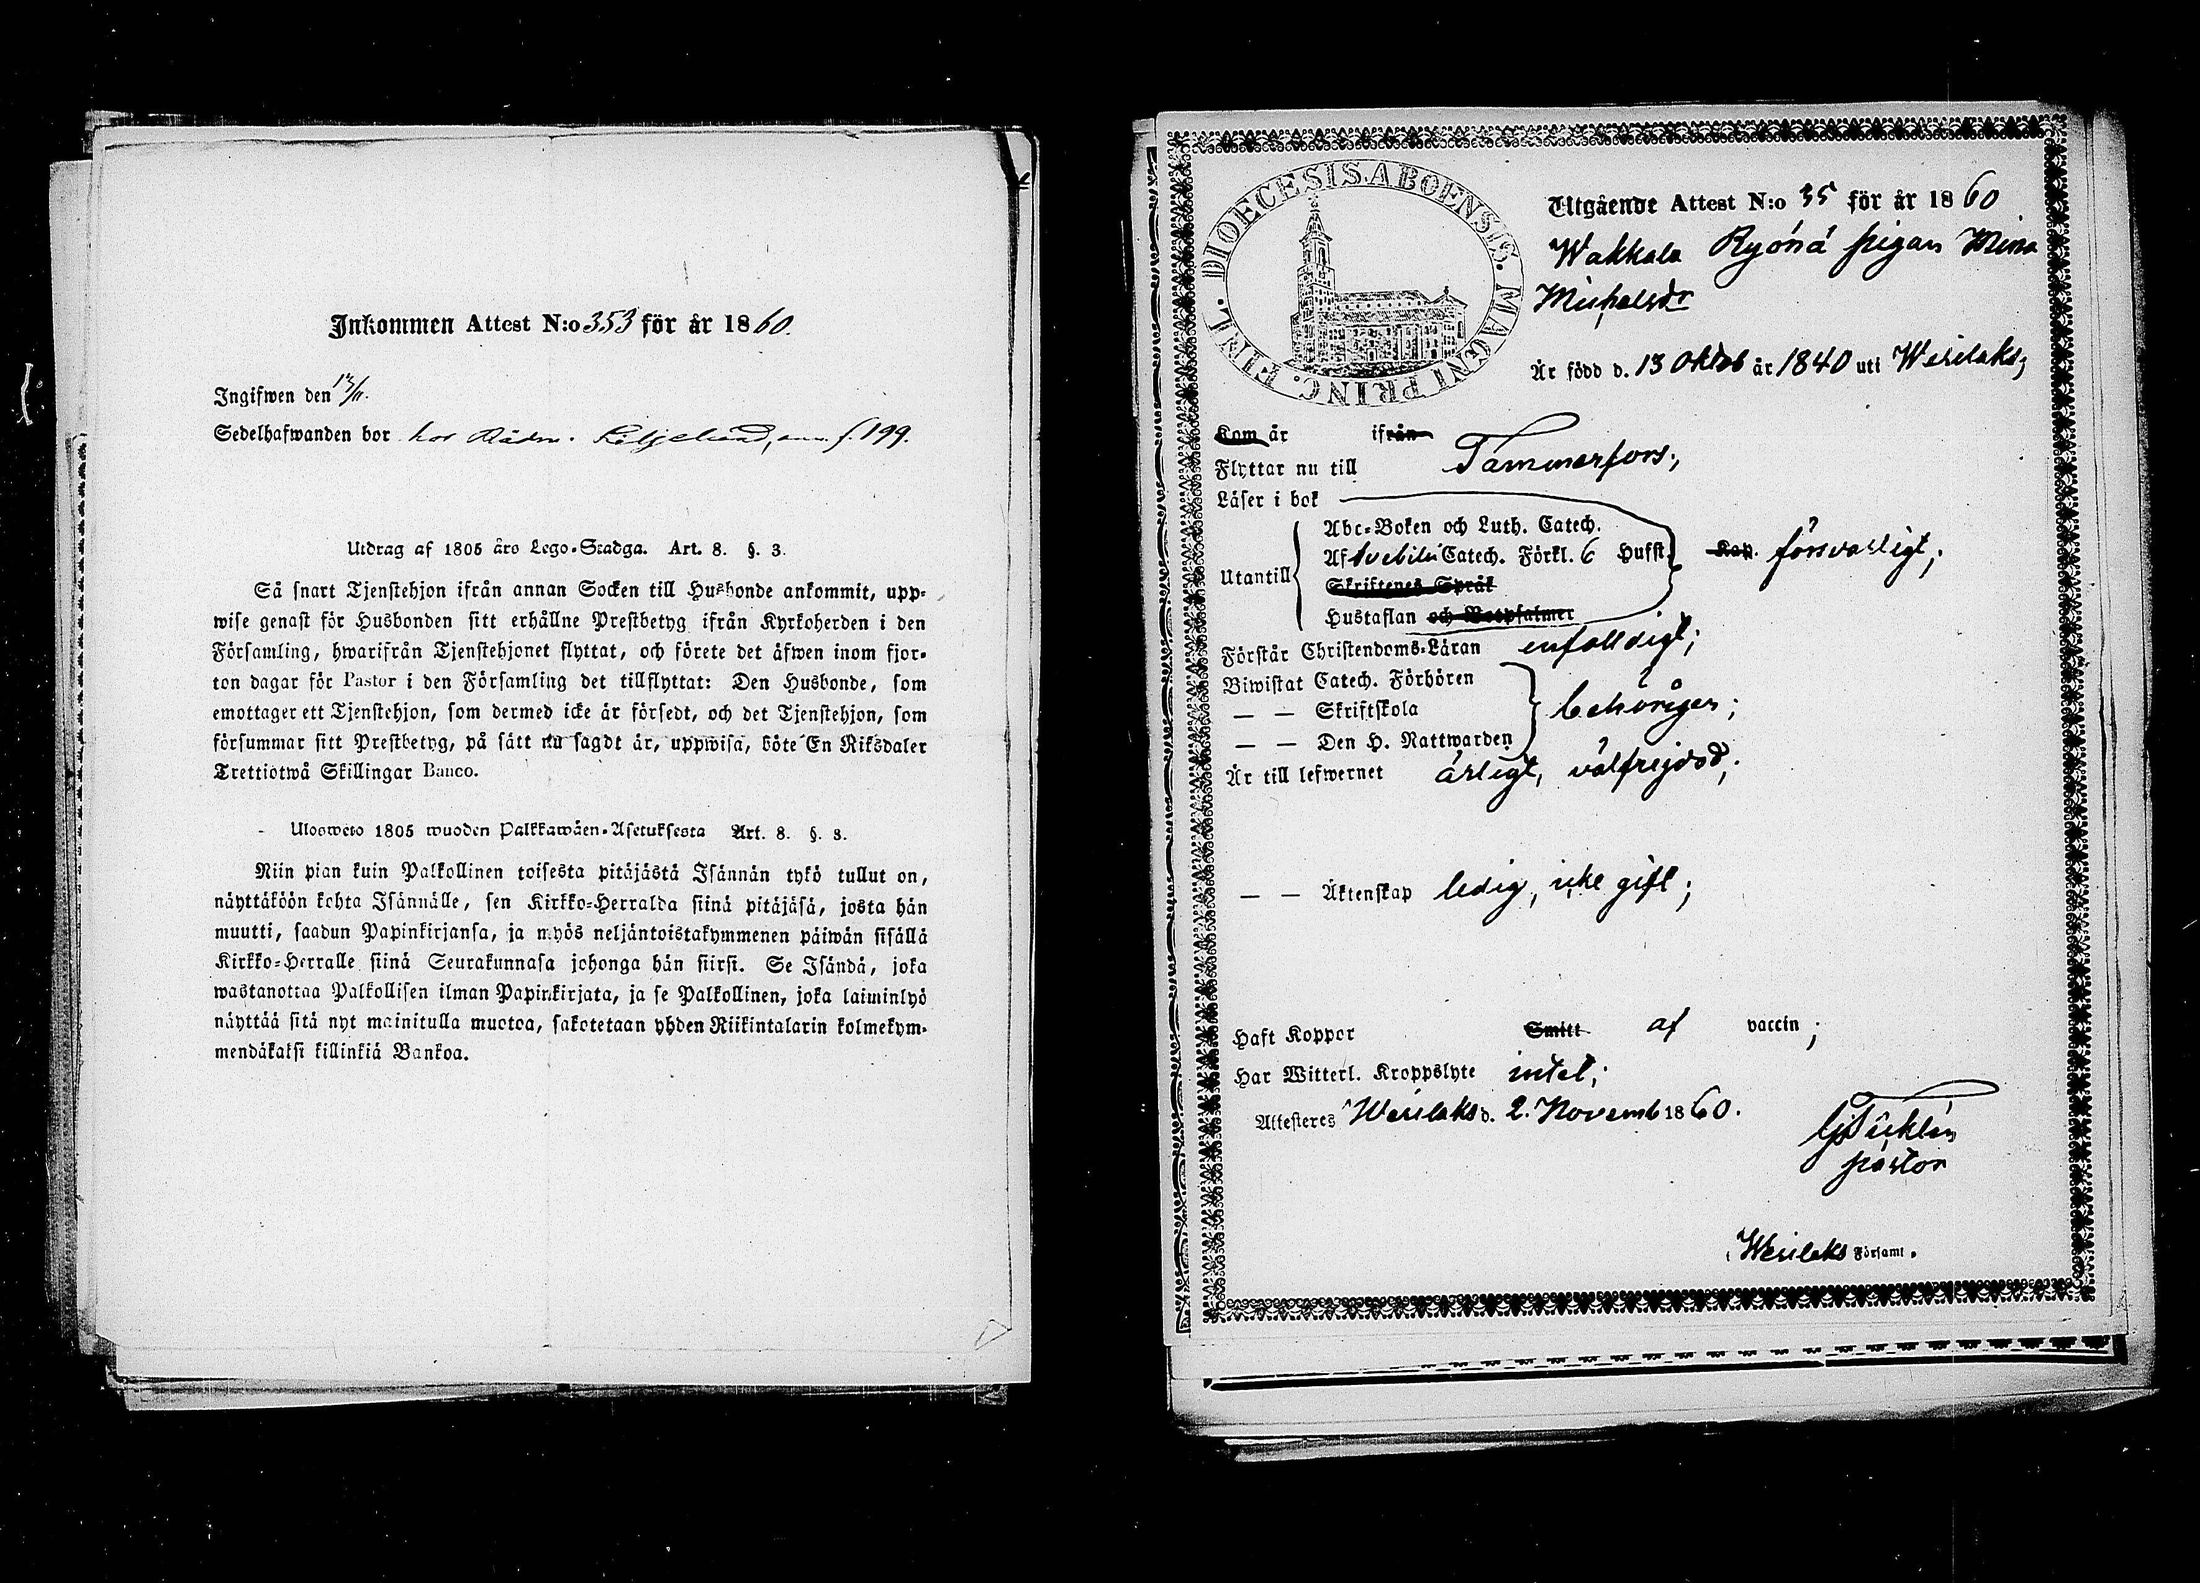 Inkommen Attest N:o 353 för år 1860.
Ingifwen den 13/11.
Sedelhafwanden bor hos Rådm. Liljelund, f. 199.
Utdrag af 1805 års Lego-Stadga. Art. 8. §. 3.
Så snart Tjenstehjon ifrån annan Socken till Husbonde ankommit, upp-
wise genast för Husbonden sitt erhållne Prestbetyg ifrån Kyrkoherden i den
Församling, hwarifrån Tjenstehjonet flyttat, och förete det äfwen inom fjor-
ton dagar för Pastor i den Församling det tillflyttat: Den Husbonde, som
emottager ett Tjenstehjon, som dermed icke är försedt, och det Tjenstehjon, som
försummar sitt Prestbetyg, på sätt nu sagdt är, uppwisa, böte En Riksdaler
Trettiotwå Skillingar Banco.
Ulosweto 1805 wuoden Palkkawäen-Asetuksesta Art. 8. §. 3.
Niin pian kuin Palkollinen toisesta pitäjästä Isännän tykö tullut on,
näyttäköön kohta Isännälle, sen Kirkko-Herralda siinä pitäjäsä, josta hän
muutti, saadun Papinkirjansa, ja myös neljäntoistakymmenen päiwän sisällä
Kirkko-Herralle siinä Seurakunnasa johonga hän siirsi. Se Isändä, joka
wastanottaa Palkollisen ilman Papinkirjata, ja se Palkollinen, joka laiminlyö
näyttää sitä nyt mainitulla muotoa, sakotetaan yhden Riikintalarin kolmekym-
mendäkaksi killinkiä Bankoa.
FINL. DIOECESIS. ABOENSIS. MAGNI PRINC.
Utgående Attest N:o 35 för år 1860
Wakkala Ryönä pigan Mina
Michelsdr
Är född d. 13 Oktob år 1840 uti Wesilaks;
Kom år ifrån
Flyttar nu till Tammerfors;
Läser i bok
Abc-Boken och Luth. Catech.
Utantill Af Svebilii Catech. Förkl. 6 Hufst. Kap. försvarligt;
Skriftenes Språk
Hustaflan och Botpsalmer
Förstår Christendoms-Läran enfalldigt;
Biwistat Catech. Förhören
— — Skriftskola behörigen;
— — Den H. Nattwarden
Är till lefwernet ärligt, välfrejdad;
— — Äktenskap ledig, icke gift;
Haft Koppor Smitt af vaccin;
Har Witterl. Kroppslyte intet;
Attesteres Wesilaks d. 2. Novemb 1860.
pastor
i Wesilaks Församl.